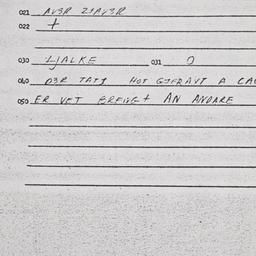 021 AVER ZIAVER
022 +
030 LJALKE 031 O
040 DER TATJ HOT GIFRAVT A CA
050 ER VET BREING+ AN ANDARE